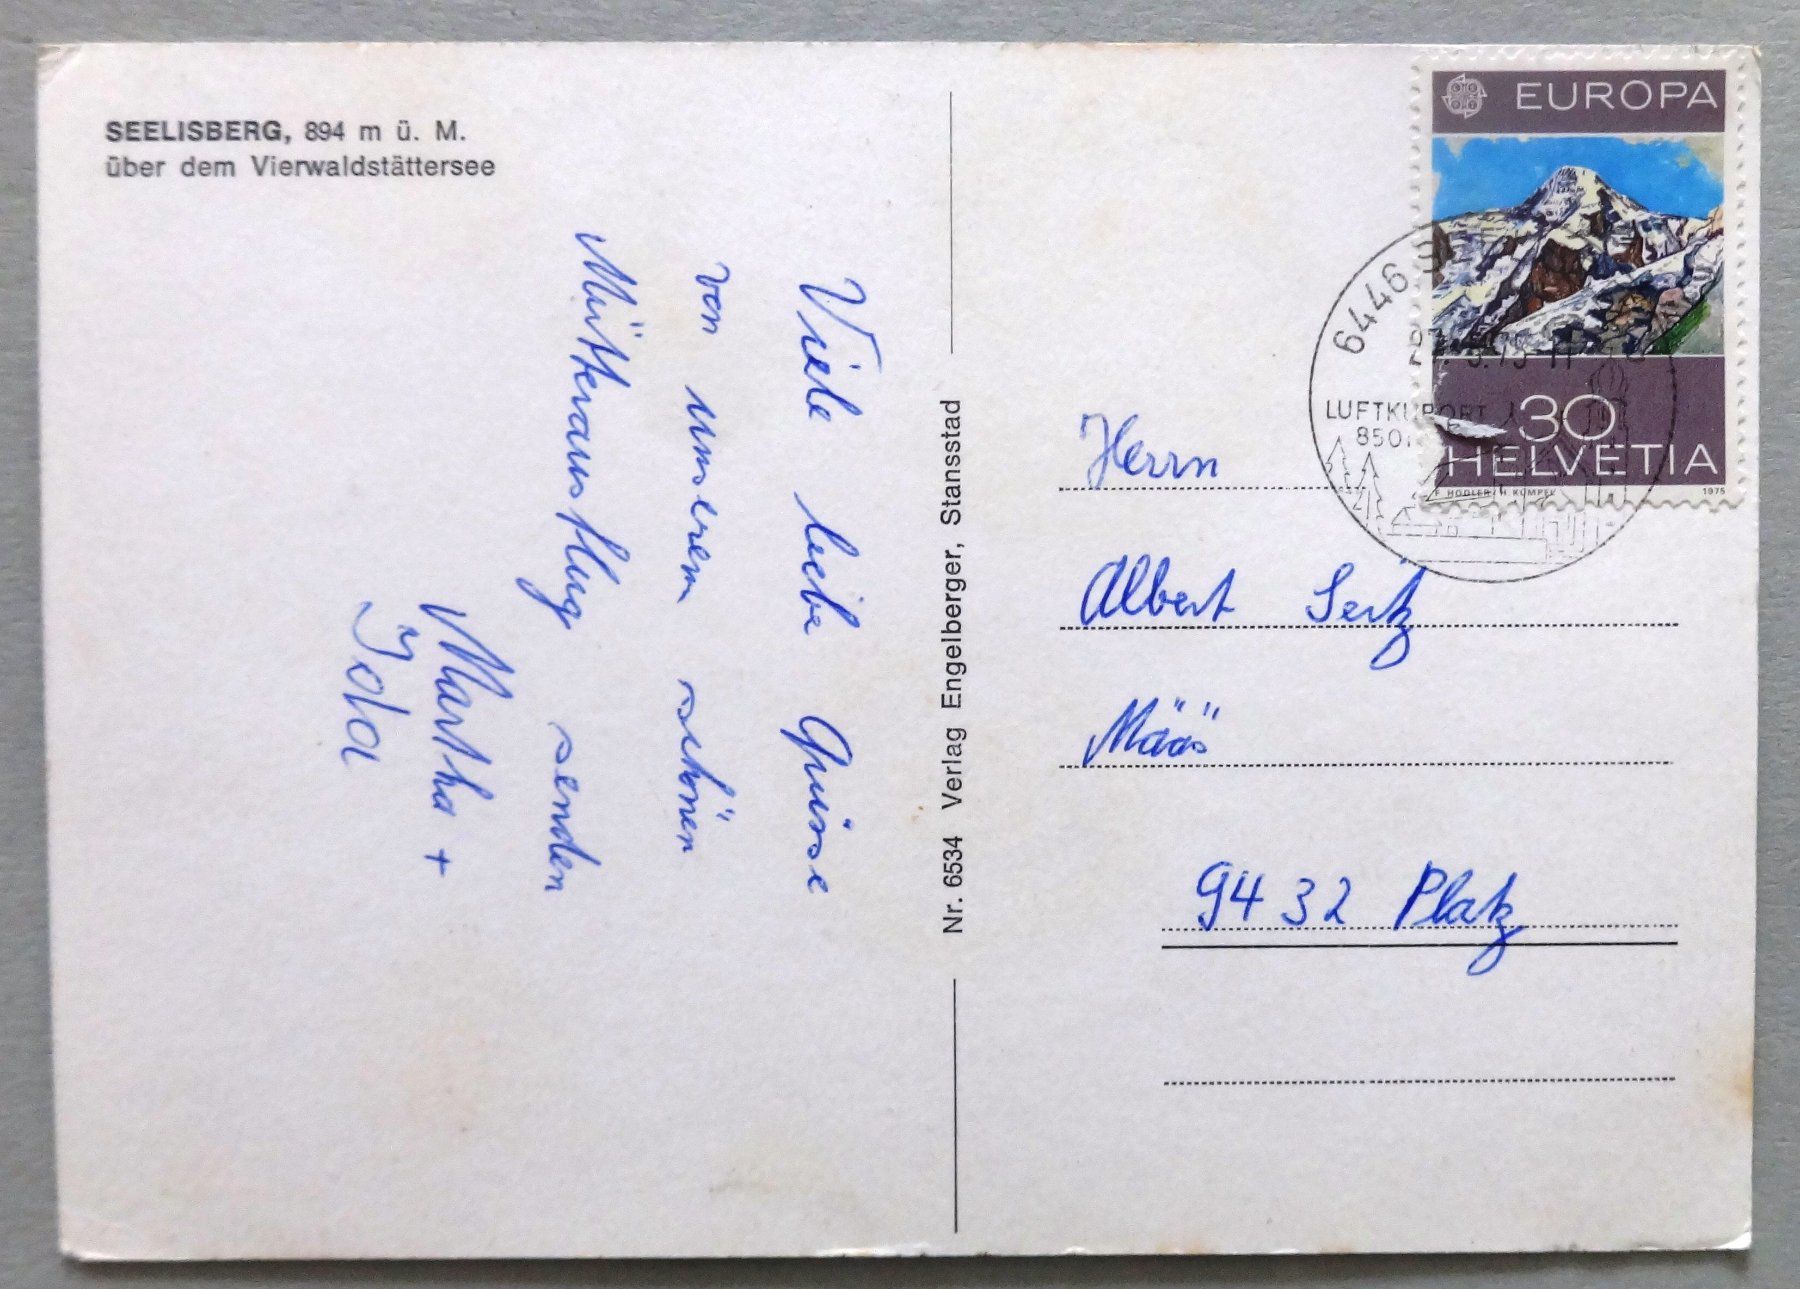 SEELISBERG, 894 m ü. M.
über dem Vierwaldstättersee
Viele liebe Grüsse
von unserem schönen
Mütterausflug senden
Martha +
Ida
Nr. 6534 Verlag Engelberger, Stansstad
EUROPA
30
HELVETIA
F HODLER/H KÜMPEL 1975
6446
LUFTKURORT
850
Herrn
Albert Seitz
Määs
9432 Platz